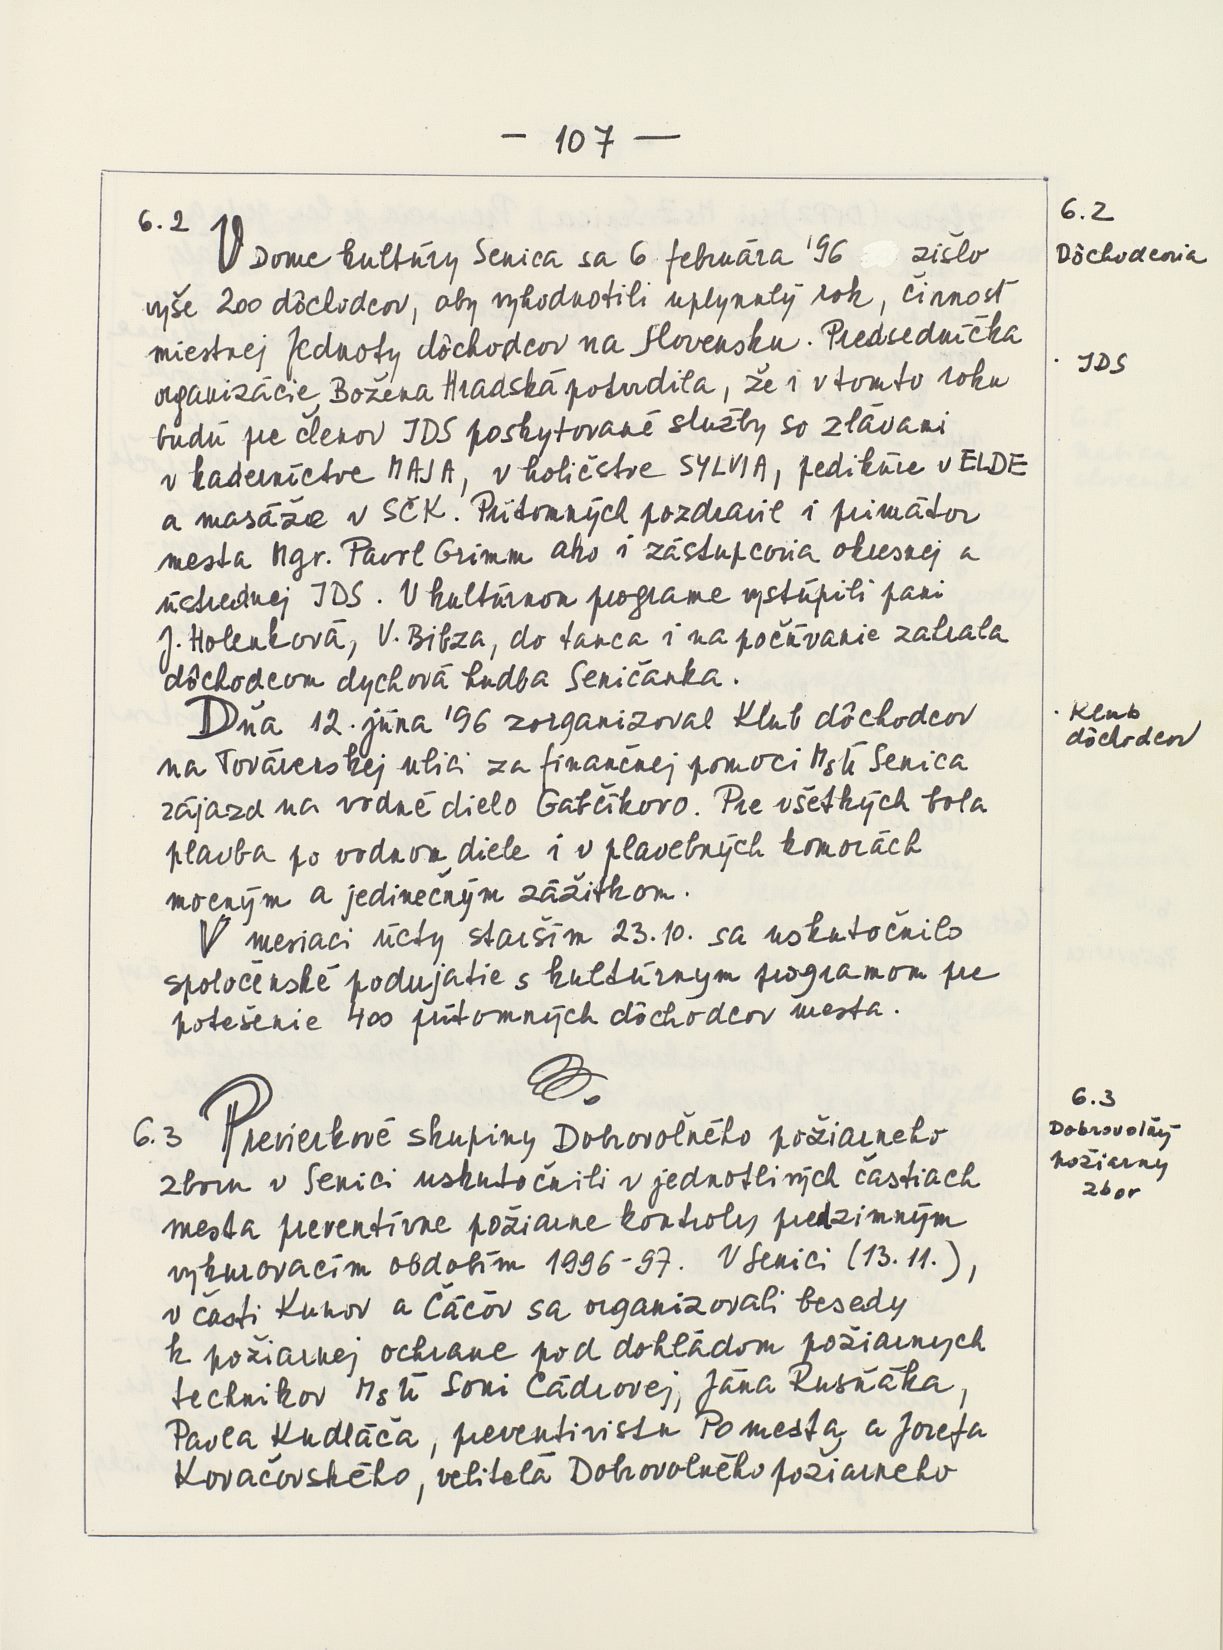 — 107 —
6.2 V Dome kultúry Senica sa 6 februára '96 zišlo
vyše 200 dôchodcov, aby vyhodnotili uplynulý rok, činnosť
miestnej Jednoty dôchodcov na Slovensku. Predsedníčka
organizácie Božena Hradská potvrdila, že i v tomto roku
budú pre členov JDS poskytované služby so zľavami
v kaderníctve MAJA, v holičstve SYLVIA, pedikúre v ELDE
a masáže v SČK. Prítomných pozdravil i primátor
mesta Mgr. Pavol Grimm ako i zástupcovia okresnej a
ústrednej JDS. V kultúrnom programe vystúpili pani
J. Holenková, V. Bibza, do tanca i na počúvanie zahrala
dôchodcom dychová hudba Seničanka.
Dňa 12. júna '96 zorganizoval Klub dôchodcov
na Továrenskej ulici za finančnej pomoci MsÚ Senica
zájazd na vodné dielo Gabčíkovo. Pre všetkých bola
plavba po vodnom diele i v plavebných komorách
mocným a jedinečným zážitkom.
V mesiaci úcty starším 23.10. sa uskutočnilo
spoločenské podujatie s kultúrnym programom pre
potešenie 400 prítomných dôchodcov mesta.
6.3 Previerkové skupiny Dobrovoľného požiarneho
zboru v Senici uskutočnili v jednotlivých častiach
mesta preventívne požiarne kontroly predzimným
vykurovacím obdobím 1996-97. V Senici (13.11.),
v časti Kunov a Čáčov sa organizovali besedy
k požiarnej ochrane pod dohľadom požiarnych
technikov MsÚ Soni Čádrovej, Jána Rusňáka,
Pavla Kudláča, preventivistu PO mesta a Jozefa
Kovačovského, veliteľa Dobrovoľného požiarneho
6.2
Dôchodcovia
· JDS
· Klub
dôchodcov
6.3
Dobrovoľný
požiarny
zbor